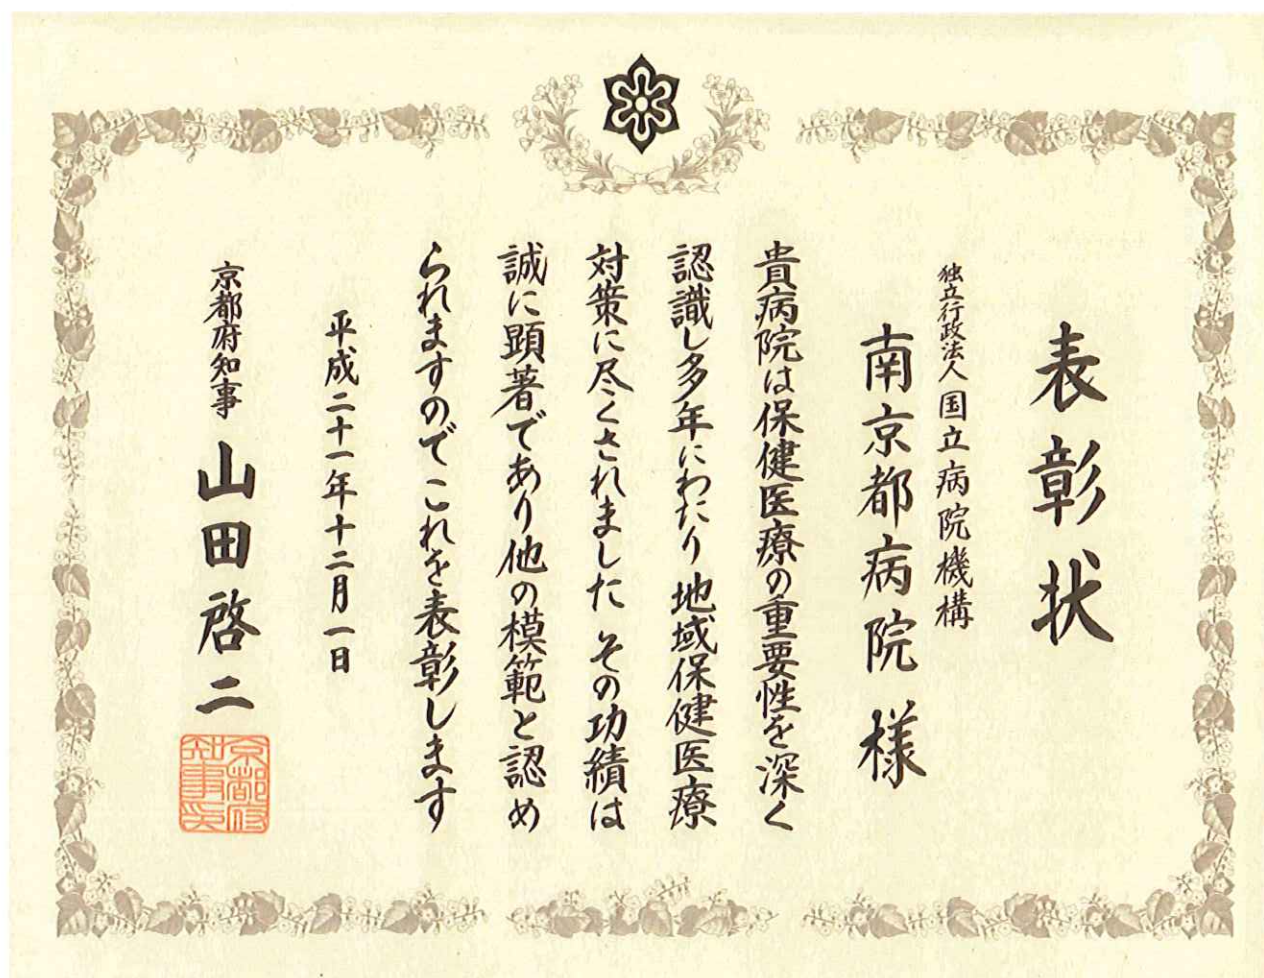 表彰状
独立行政法人国立病院機構
南京都病院様
貴病院は保健医療の重要性を深く
認識し多年にわたり地域保健医療
対策に尽くされました その功績は
誠に顕著であり他の模範と認め
られますのでこれを表彰します
平成二十一年十二月一日
京都府知事 山田啓二
京都府
知事印